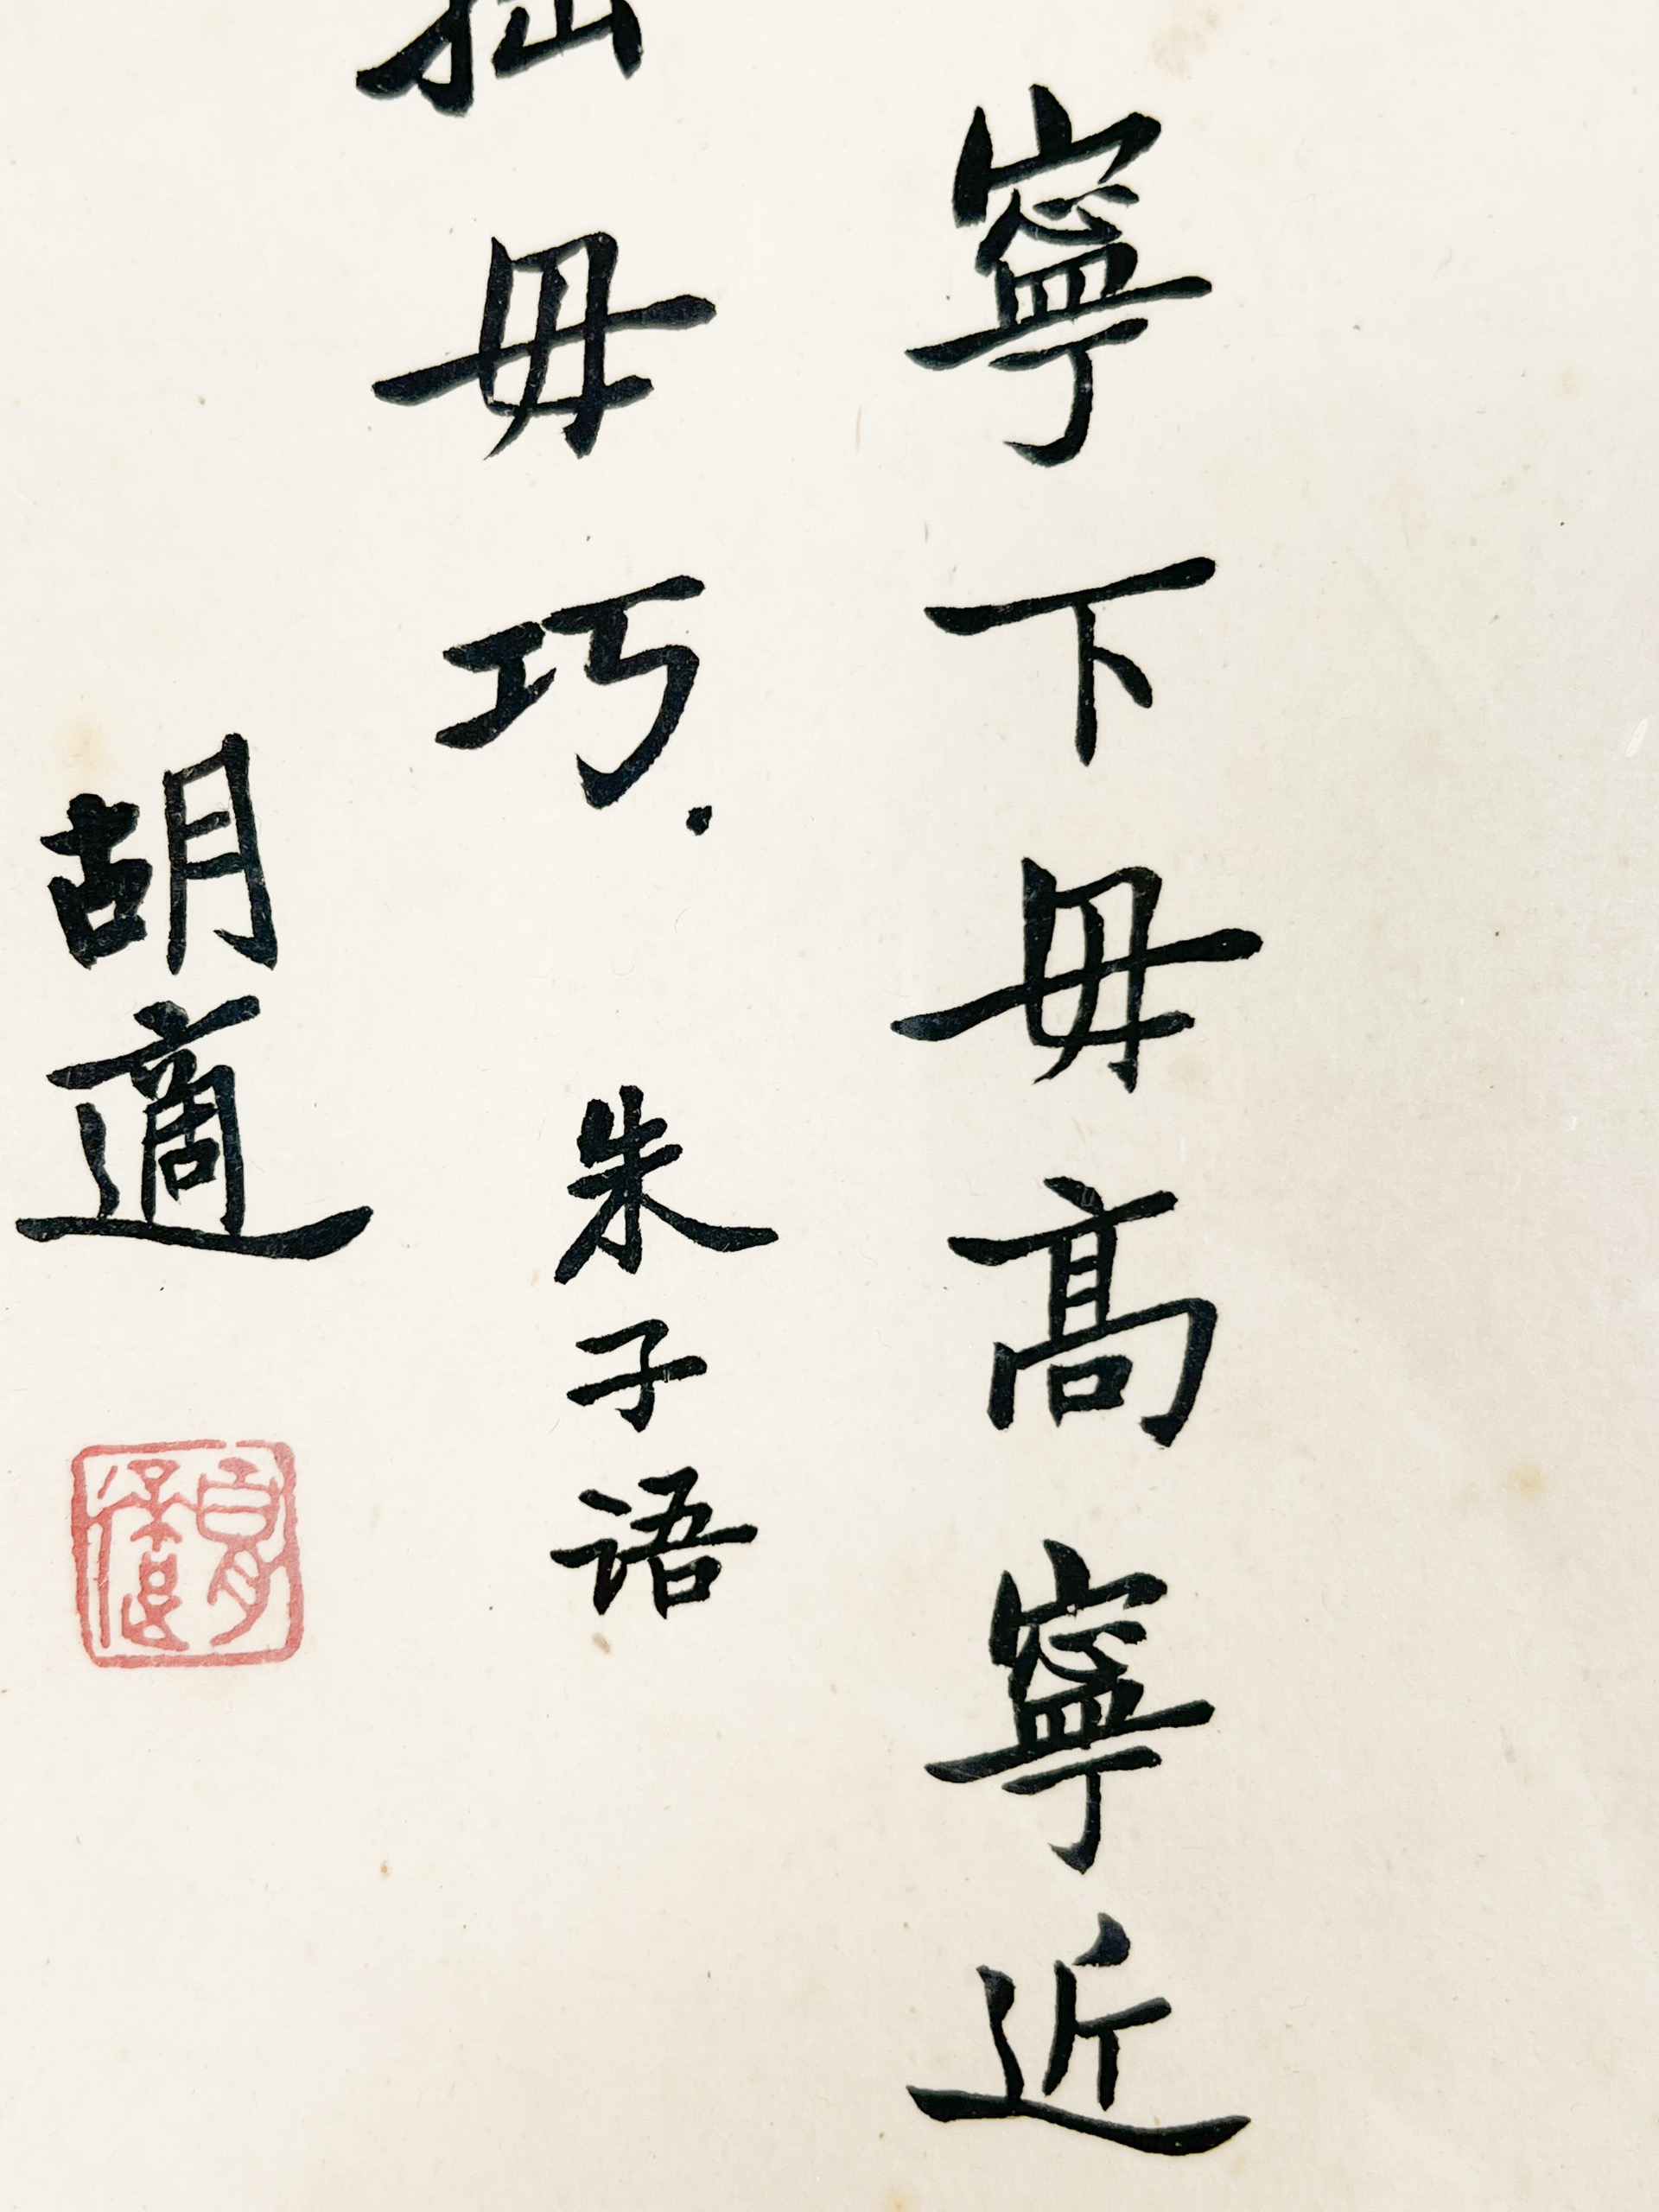 寧下毋高寧近
拙毋巧.
朱子語
胡適